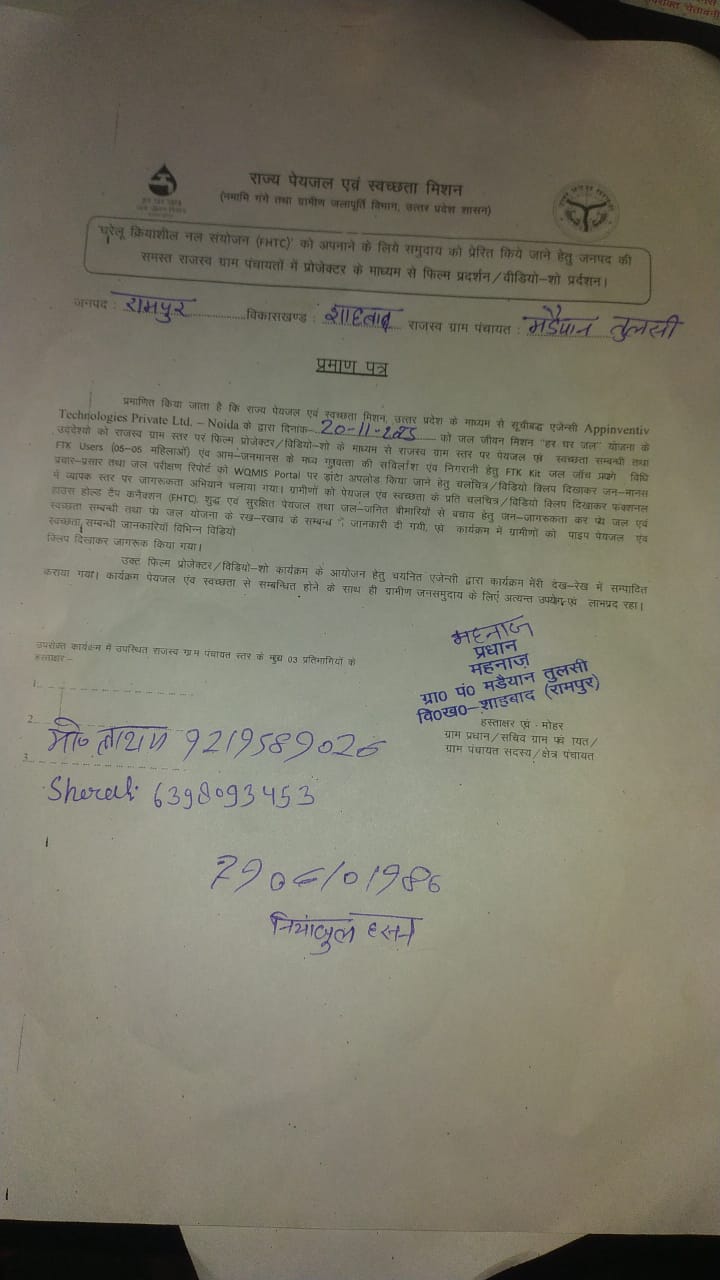 राज्य पेयजल एवं स्वच्छता मिशन
(नमामि गंगे तथा ग्रामीण जलापूर्ति विभाग, उत्तर प्रदेश शासन)
'घरेलू क्रियाशील नल संयोजन (FHTC)' को अपनाने के लिये समुदाय को प्रेरित किये जाने हेतु जनपद की
समस्त राजस्व ग्राम पंचायतों में प्रोजेक्टर के माध्यम से फिल्म प्रदर्शन/वीडियो-शो प्रर्दशन।
जनपद : रामपुर विकासखण्ड : शाहबाद राजस्व ग्राम पंचायत : मडैयान तुलसी
प्रमाण पत्र
प्रमाणित किया जाता है कि राज्य पेयजल एवं स्वच्छता मिशन, उत्तर प्रदेश के माध्यम से सूचीबद्ध एजेन्सी Appinventiv
Technologies Private Ltd. – Noida के द्वारा दिनांक 20-11-2025 को जल जीवन मिशन "हर घर जल" योजना के
उददेश्यो को राजस्व ग्राम स्तर पर फिल्म प्रोजेक्टर/विडियो-शो के माध्यम से राजस्व ग्राम स्तर पर पेयजल एवं स्वच्छता सम्बन्धी तथा
FTK Users (05-05 महिलाओं) एंव आम-जनमानस के मध्य गुणवत्ता की सर्विलांश एंव निगरानी हेतु FTK Kit जल जाँच प्रयोग विधि
प्रचार-प्रसार तथा जल परीक्षण रिपोर्ट को WQMIS Portal पर डांटा अपलोड किया जाने हेतु चलचित्र/विडियो क्लिप दिखाकर जन-मानस
में व्यापक स्तर पर जागरूकता अभियान चलाया गया। ग्रामीणों को पेयजल एंव स्वच्छता के प्रति चलचित्र/विडियो क्लिप दिखाकर फंक्शनल
हाउस होल्ड टैप कनैक्शन (FHTC), शुद्ध एवं सुरक्षित पेयजल तथा जल-जनित बीमारियों से बचाव हेतु जन-जागरुकता कर जल एवं
स्वच्छता सम्बन्धी तथा जल योजना के रख-रखाव के सम्बन्ध में जानकारी दी गयी, एवं कार्यक्रम में ग्रामीणों को पाइप पेयजल एंव
स्वच्छता सम्बन्धी जानकारियां विभिन्न विडियो
क्लिप दिखाकर जागरूक किया गया।
उक्त फिल्म प्रोजेक्टर/विडियो-शो कार्यक्रम के आयोजन हेतु चयनित एजेन्सी द्वारा कार्यक्रम मेरी देख-रेख में सम्पादित
कराया गया। कार्यक्रम पेयजल एंव स्वच्छता से सम्बन्धित होने के साथ ही ग्रामीण जनसमुदाय के लिएं अत्यन्त उपयोग एवं लाभप्रद रहा।
उपरोक्त कार्यक्रम में उपस्थित राजस्व ग्राम पंचायत स्तर के मुख्य 03 प्रतिभागियों के
हस्ताक्षर:-
महनाज
प्रधान
महनाज़
ग्रा0 पं0 मडैयान तुलसी
वि0ख0-शाहबाद (रामपुर)
हस्ताक्षर एवं मोहर
ग्राम प्रधान/सचिव ग्राम पंचायत/
ग्राम पंचायत सदस्य/क्षेत्र पंचायत
1.
2.
मो० 9219589026
3.
6398093453